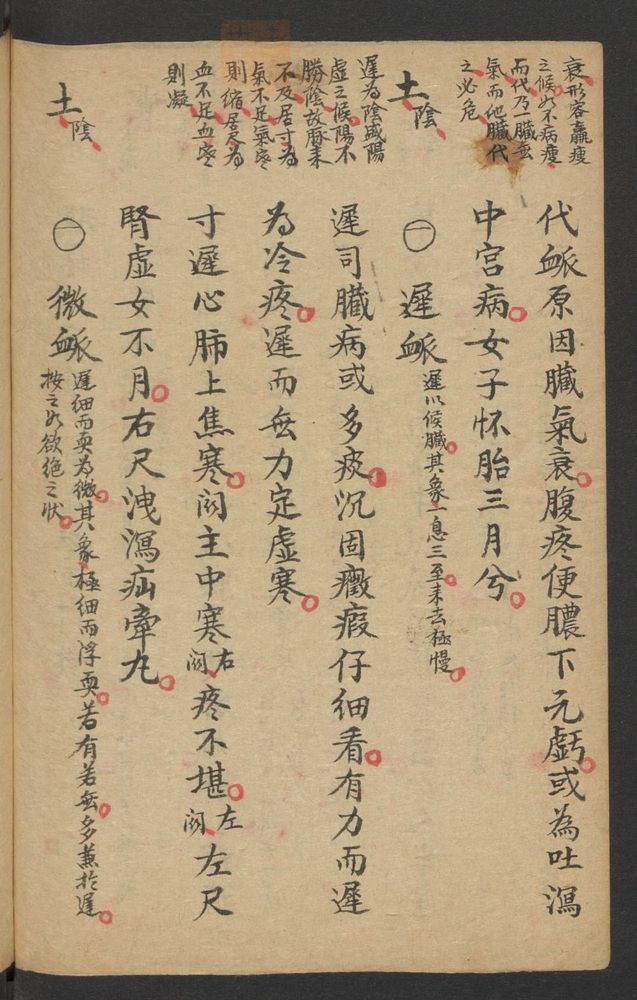 衰形容羸瘦
之候如不病瘦
而代乃一臟無
氣而他臟代
之必危
代脈原因臟氣衰腹疼便膿下元虧或為吐瀉
中宮病女子怀胎三月兮
土陰
一 遲脈 遲以候臟其象一息三至来去极慢
遲為陰盛陽
虛之候陽不
勝陰故脈来
不及居寸為
氣不足氣寒
則缩居尺為
血不足血寒
則凝
遲司臟病或多痰沉固癥瘕仔细看有力而遲
為冷疼遲而無力定虛寒
寸遲心肺上焦寒関主中寒右関疼不堪左関左尺
腎虛女不月右尺洩瀉疝牽丸
土陰
一 微脈 遲细而耎為微其象極细而浮耎若有若無多兼於遲
按之如欲绝之状